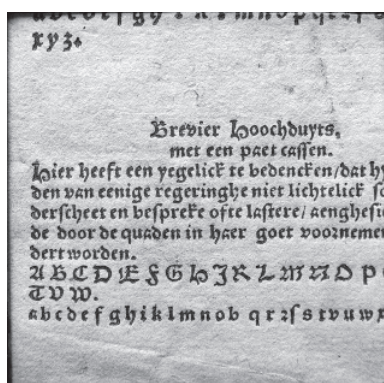 a b c d e f g h i k l m n o p q r z s
x y z.
Brevier Hoochduyts,
met een paet cassen.
Hier heeft een yegelick te bedencken/dat hy
den van eenige regeringhe niet lichtelick
derscheet en bespreke ofte lastere/aenghesi
de door de quaden in haer goet voornemen
dert worden.
A B C D E F G H I K L M N O P
T V W.
a b c d e f g h i k l m n o b q r z s s t v u w x